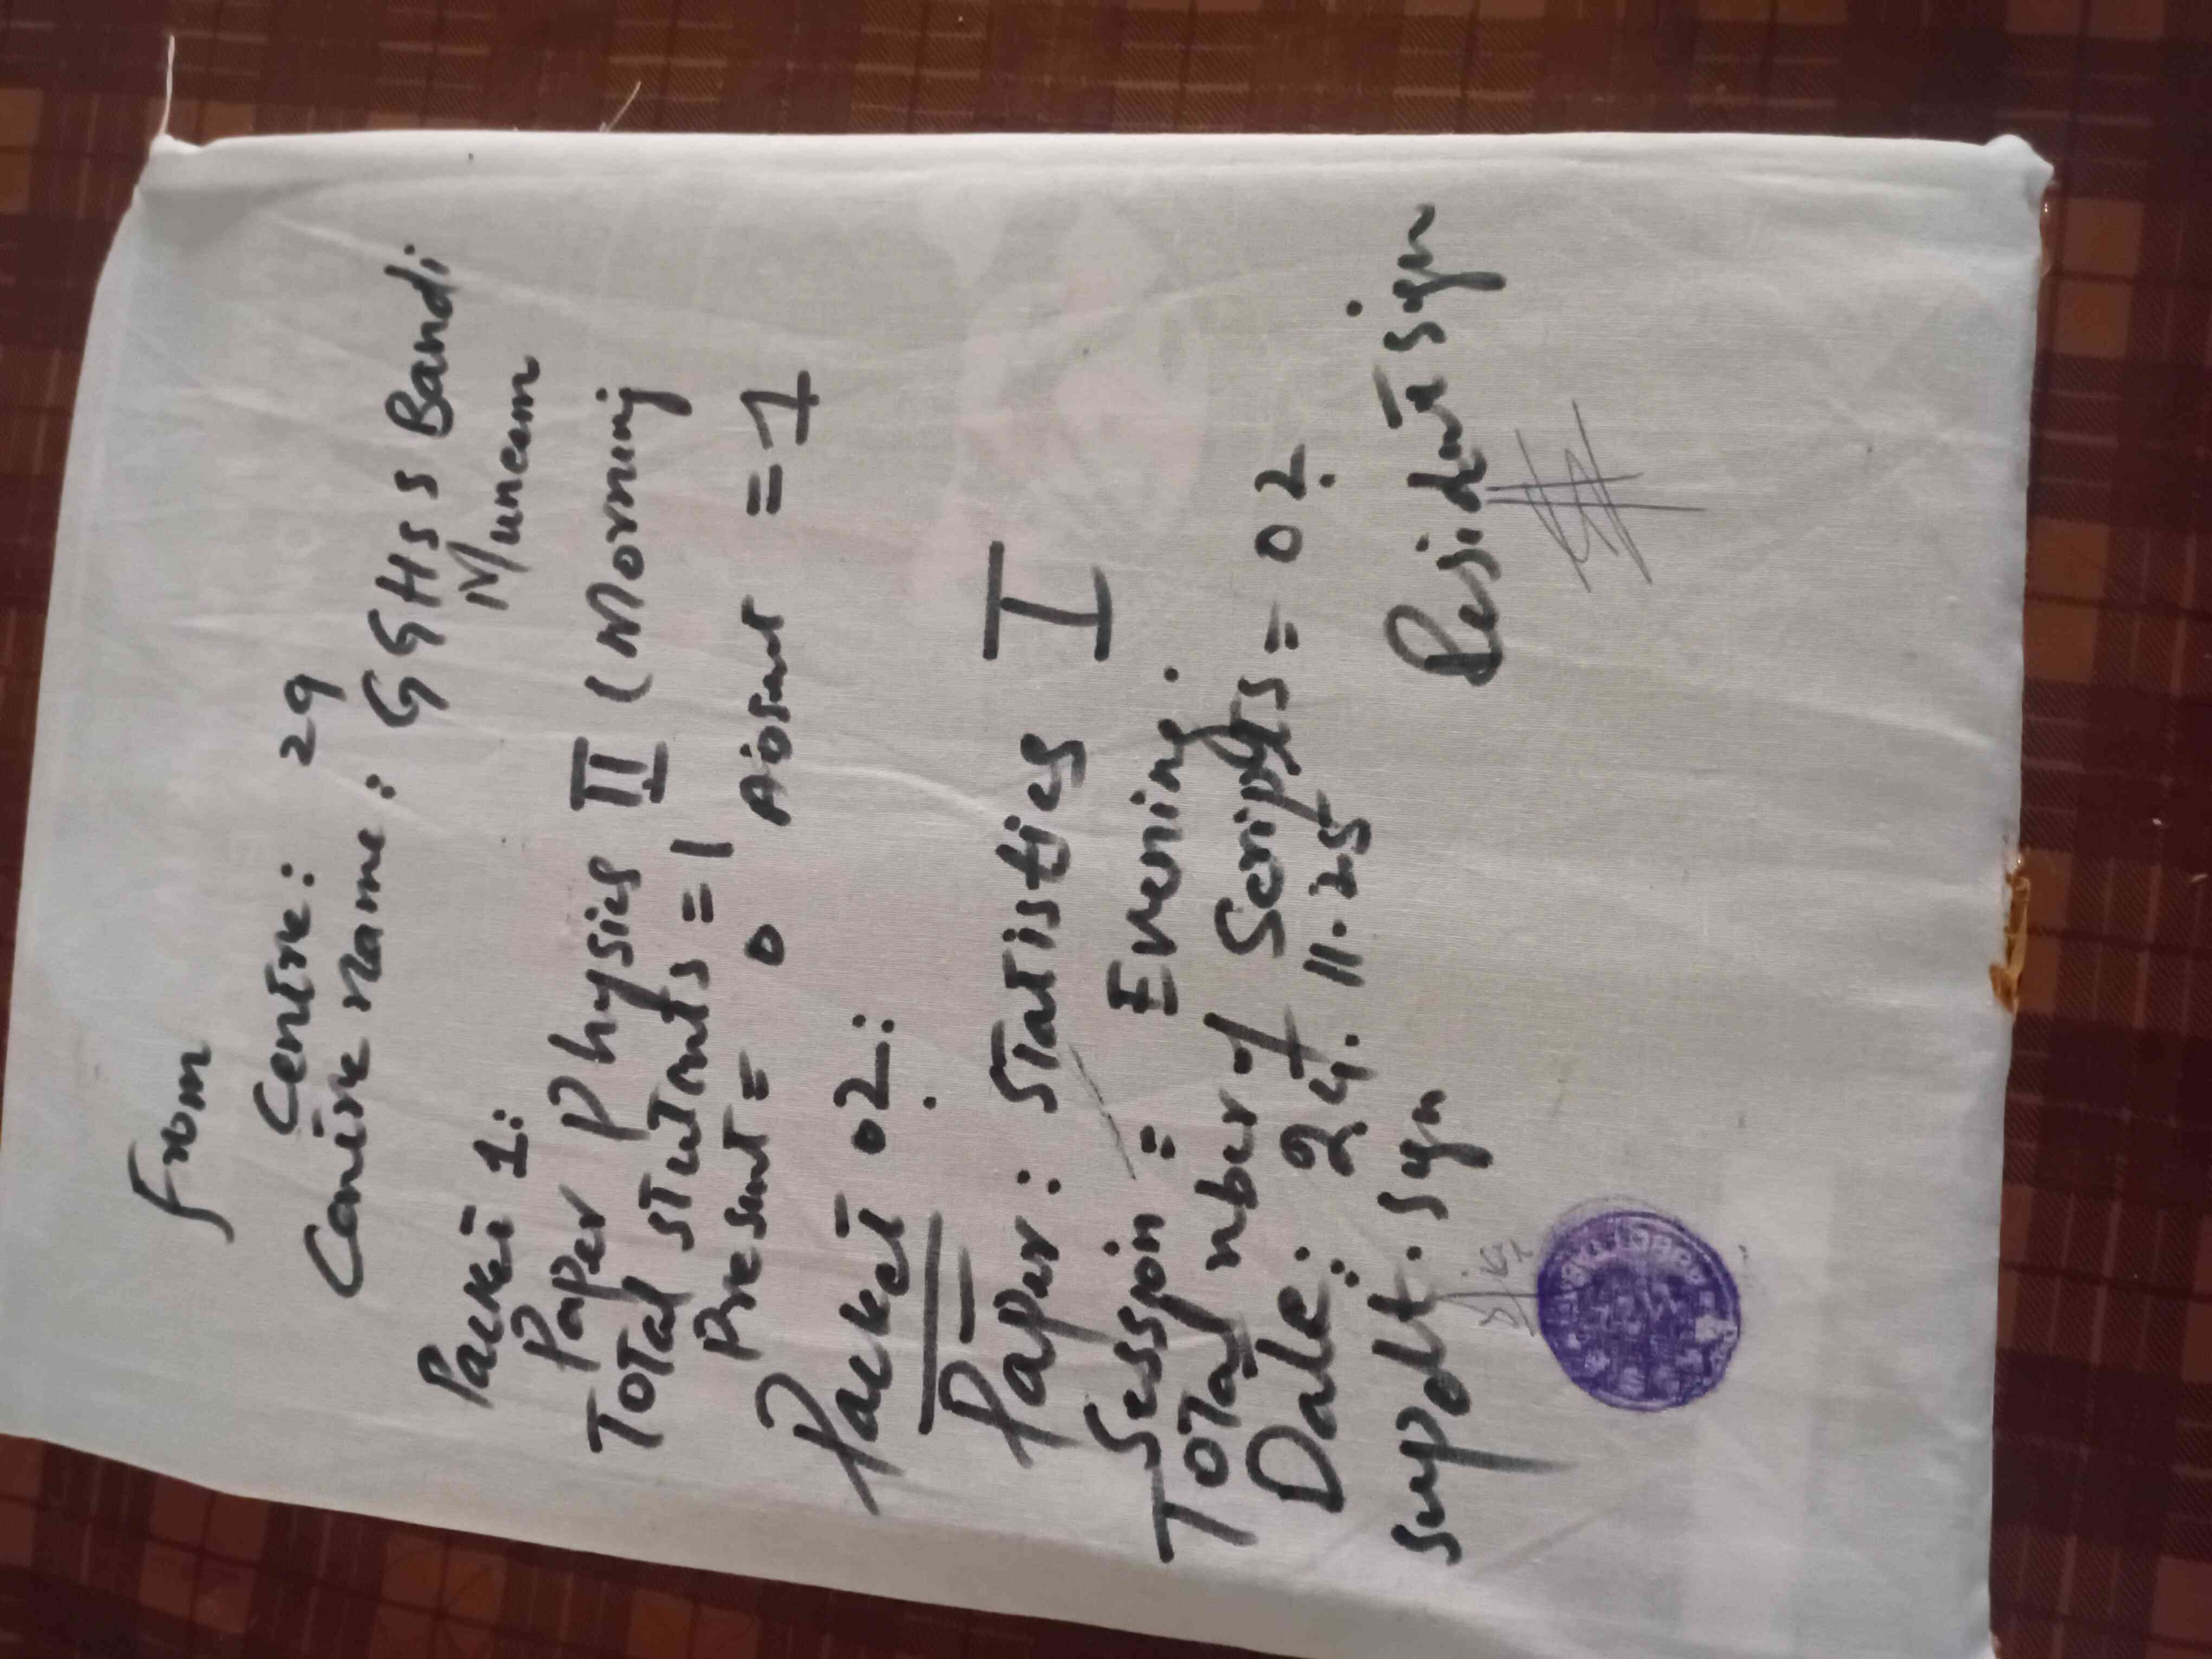 From
Centre: 29
Centre Name: GGHSS Bandi
Muneem
Packet 1:
Paper Physics II (Morning
Total students = 1
Present = 0 Absent = 1
Packet 02:
Paper: Statistics I
Session = Evening.
Total nber of Scripts = 02
Date: 24.11.25
Supdt. Sign Resident Sign